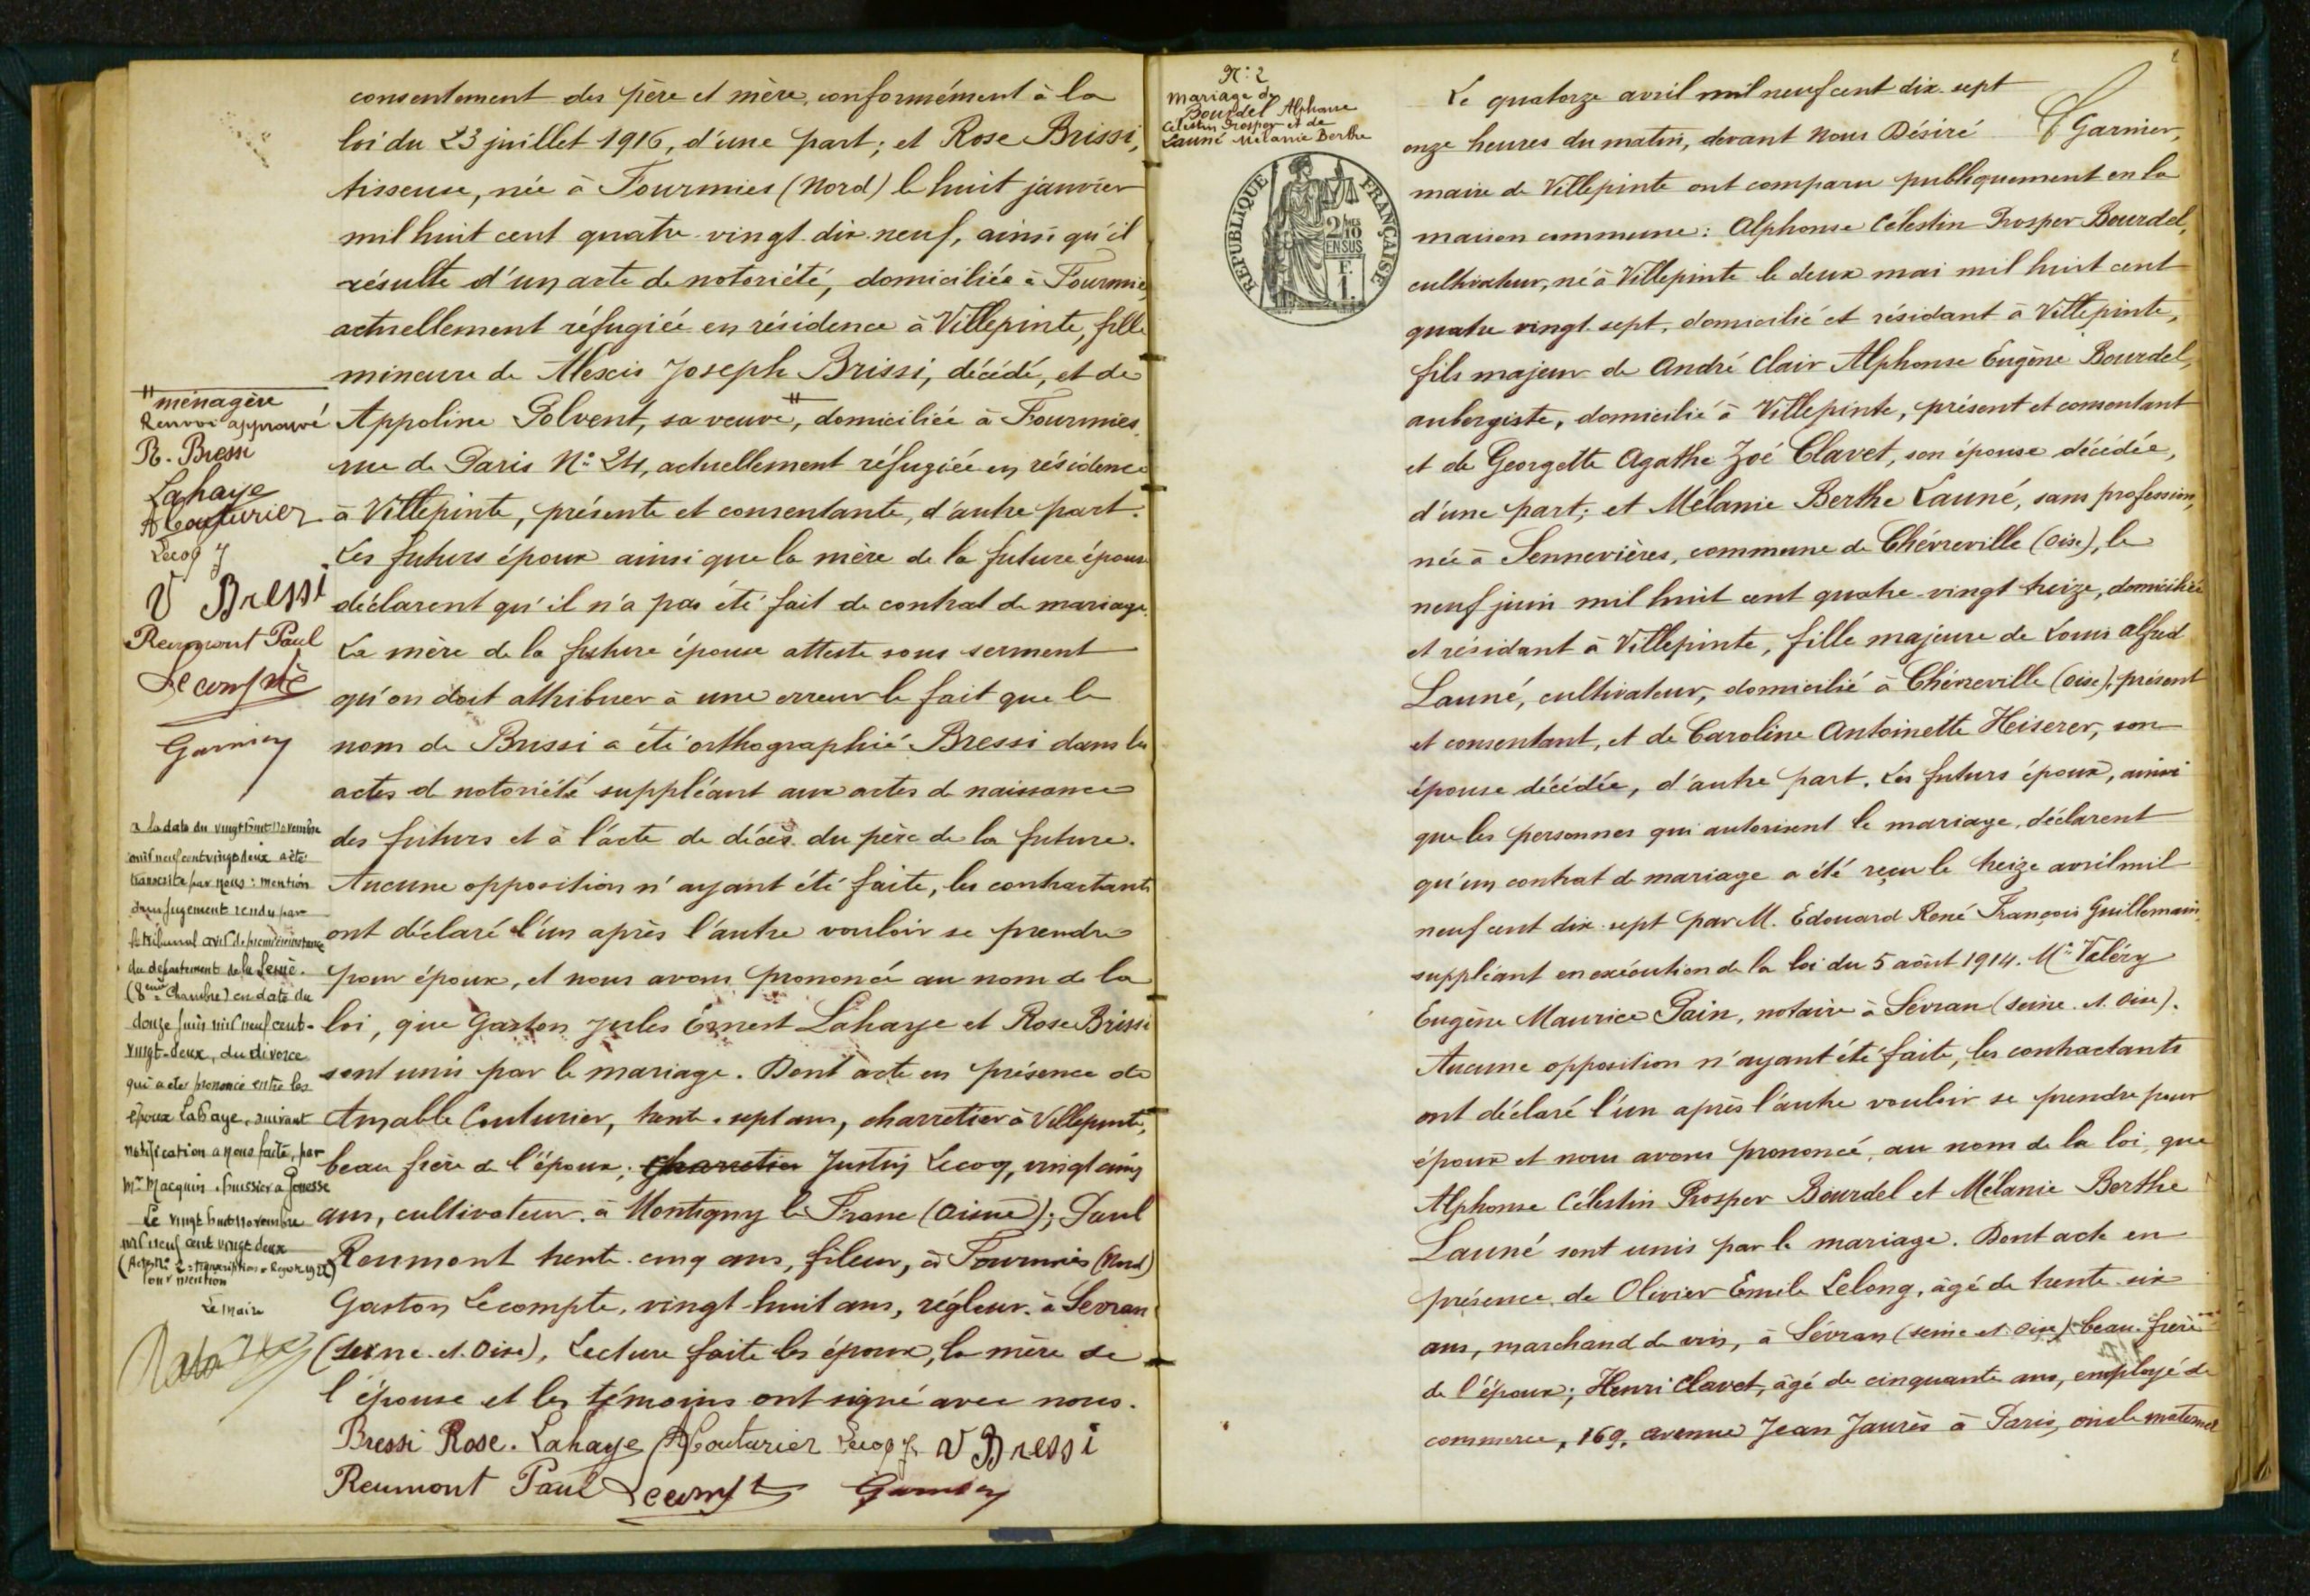 consentement des père et mère, conformément à la
loi du 23 juillet 1916, d'une part; et Rose Brissi,
tisseuse, née à Fourmies (Nord) le huit janvier
mil huit cent quatre-vingt-dix-neuf, ainsi qu'il
résulte d'un acte de notoriété, domiciliée à Fourmies
actuellement réfugiée en résidence à Villepinte, fille
mineure de Alexis Joseph Brissi, décédé, et de
Appoline Polvent, sa veuve #, domiciliée à Fourmies
rue de Paris N° 24, actuellement réfugiée en résidence
à Villepinte, présente et consentante, d'autre part.
Les futurs époux ainsi que la mère de la future épouse
déclarent qu'il n'a pas été fait de contrat de mariage.
La mère de la future épouse atteste sous serment
qu'on doit attribuer à une erreur le fait que le
nom de Brissi a été orthographié Bressi dans les
actes de notoriété suppléant aux actes de naissance
des futurs et à l'acte de décès du père de la future.
Aucune opposition n'ayant été faite, les contractants
ont déclaré l'un après l'autre vouloir se prendre
pour époux, et nous avons prononcé au nom de la
loi, que Gaston Jules Ernest Lahaye et Rose Brissi
sont unis par le mariage. Dont acte en présence de
Amable Couturier, trente-sept ans, charretier à Villepinte,
beau frère de l'époux; charretier Justin Lecoq, vingt cinq
ans, cultivateur à Montigny le Franc (Aisne); Paul
Reumont trente-cinq ans, fileur, à Fourmies (Nord)
Gaston Lecompte, vingt-huit ans, régleur à Sevran
(Seine-et-Oise), Lecture faite les époux, la mère de
l'épouse et les témoins ont signé avec nous.
Bressi Rose. Lahaye A Couturier Lecoq J. V Bressi
Reumont Paul Lecompte Garnier
# ménagère
Renvoi approuvé
R. Bressi
Lahaye
A Couturier
Lecoq J
V Bressi
Reumont Paul
Lecompte
Garnier
à la date du vingt huit novembre
mil neuf cent vingt deux a été
transcrite par nous: mention
d'un jugement rendu par
le tribunal civil de première instance
du département de la Seine.
(8ème Chambre) en date du
douze juin mil neuf cent-
vingt-deux, du divorce
qui a été prononcé entre les
époux Lahaye, suivant
notification à nous faite, par
Mr Macquin huissier à Gonesse
Le vingt huit novembre
mil neuf cent vingt deux
(Acte N° 2 = transcription = Registre 1922)
Pour mention
Le Maire
N° 2
Mariage de
Bourdel Alphonse
Célestin Prosper et de
Launé Mélanie Berthe
REPUBLIQUE FRANÇAISE
2/10 EN SUS
F.
1.
2
Le quatorze avril mil neuf cent dix-sept
onze heures du matin, devant Nous Désiré Garnier,
maire de Villepinte ont comparu publiquement en la
maison commune: Alphonse Célestin Prosper Bourdel,
cultivateur, né à Villepinte le deux mai mil huit cent
quatre vingt-sept, domicilié et résidant à Villepinte,
fils majeur de André Clair Alphonse Eugène Bourdel,
aubergiste, domicilié à Villepinte, présent et consentant
et de Georgette Agathe Zoé Clavet, son épouse décédée,
d'une part; et Mélanie Berthe Launé, sans profession,
née à Sennevières, commune de Chévreville (Oise), le
neuf juin mil huit cent quatre-vingt treize, domiciliée
et résidant à Villepinte, fille majeure de Louis Alfred
Launé, cultivateur, domicilié à Chévreville (Oise), présent
et consentant, et de Caroline Antoinette Heiserer, son
épouse décédée, d'autre part. Les futurs époux, ainsi
que les personnes qui autorisent le mariage, déclarent
qu'un contrat de mariage a été reçu le treize avril mil
neuf cent dix-sept par M. Edouard René François Guillemain
suppléant en exécution de la loi du 5 août 1914. Me Valéry
Eugène Maurice Pain, notaire à Sévran (Seine-et-Oise).
Aucune opposition n'ayant été faite, les contractants
ont déclaré l'un après l'autre vouloir se prendre pour
époux et nous avons prononcé, au nom de la loi, que
Alphonse Célestin Prosper Bourdel et Mélanie Berthe
Launé sont unis par le mariage. Dont acte en
présence de Olivier Emile Lelong, âgé de trente-six
ans, marchand de vin, à Sévran (Seine et Oise) beau-frère
de l'époux; Henri Clavet, âgé de cinquante ans, employé de
commerce, 169, avenue Jean Jaurès à Paris, oncle maternel